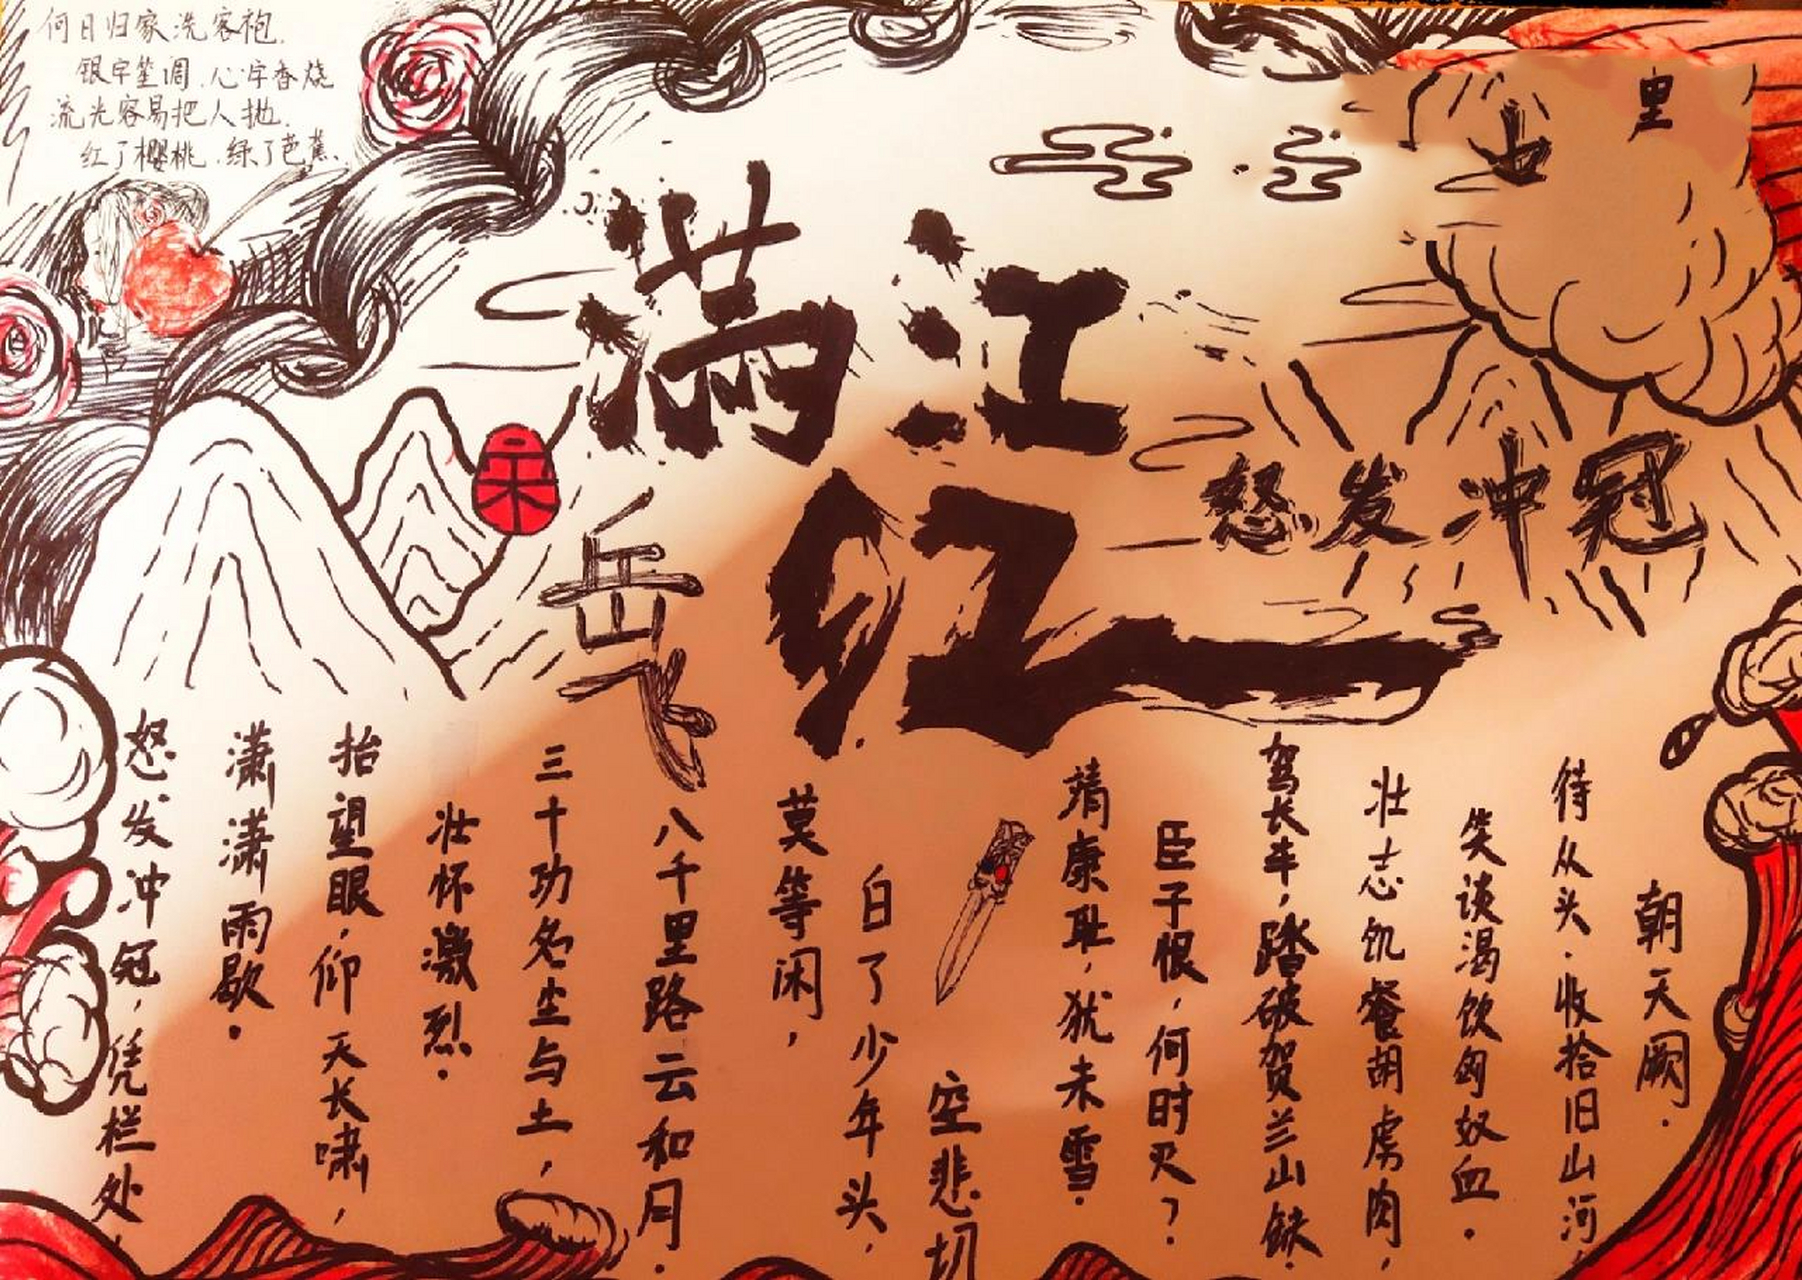 何日归家洗客袍.
银字笙调.心字香烧
流光容易把人抛.
红了樱桃.绿了芭蕉.
里
山
满江
红
宋
岳飞
怒发冲冠
怒发冲冠,凭栏处,
潇潇雨歇.
抬望眼,仰天长啸,
壮怀激烈.
三十功名尘与土,
八千里路云和月.
莫等闲,
白了少年头,
空悲切
靖康耻,犹未雪.
臣子恨,何时灭?
驾长车,踏破贺兰山缺.
壮志饥餐胡虏肉,
笑谈渴饮匈奴血.
待从头.收拾旧山河,
朝天阙.